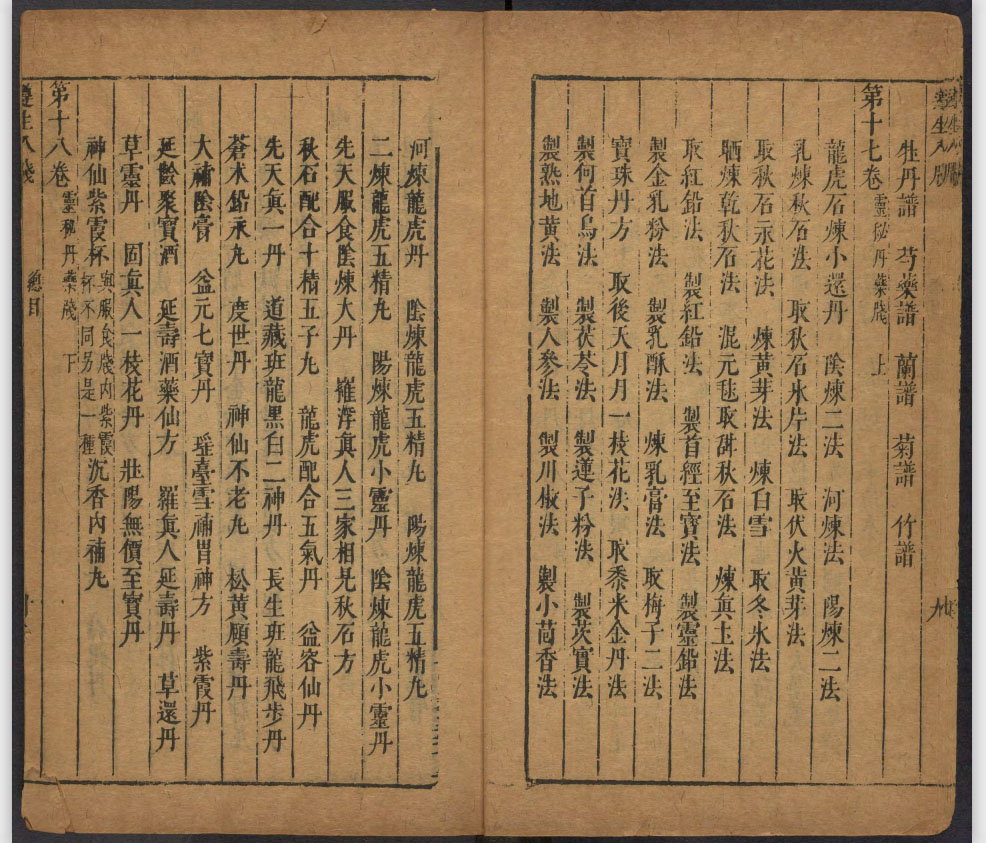 牡丹譜　芍藥譜　蘭譜　菊譜　竹譜
第十七卷　靈秘丹藥牋　上
龍虎石煉小還丹　陰煉二法　河煉法　陽煉二法
乳煉秋石法　取秋石氷片法　取伏火黃芽法
取秋石永花法　煉黃芽法　煉白雪　取冬氷法
晒煉乾秋石法　混元毬取硏秋石法　煉眞土法
取紅鉛法　製紅鉛法　製首經至寶法　製靈鉛法
製金乳粉法　製乳酥法　煉乳膏法　取梅子二法
寶珠丹方　取後天月月一枝花法　取黍米金丹法
製何首烏法　製茯苓法　製蓮子粉法　製芡實法
製熟地黃法　製人參法　製川椒法　製小茴香法
河煉龍虎丹　陰煉龍虎五精丸　陽煉龍虎五精丸
二煉龍虎五精丸　陽煉龍虎小靈丹　陰煉龍虎小靈丹
先天服食陰煉大丹　羅浮眞人三家相見秋石方
秋石配合十精五子丸　龍虎配合五氣丹　益容仙丹
先天眞一丹　道藏班龍黑白二神丹　長生班龍飛步丹
蒼术鉛汞丸　度世丹　神仙不老丸　松黃頤壽丹
大補陰膏　益元七寶丹　瑤臺雪補胃神方　紫霞丹
延齡聚寶酒　延壽酒藥仙方　羅眞人延壽丹　草還丹
草靈丹　固眞人一枝花丹　壯陽無價至寶丹
神仙紫霞杯 與服食牋內紫霞杯不同另是一種 沉香內補丸
第十八卷　靈秘丹藥牋　下
遵生八牋
總目